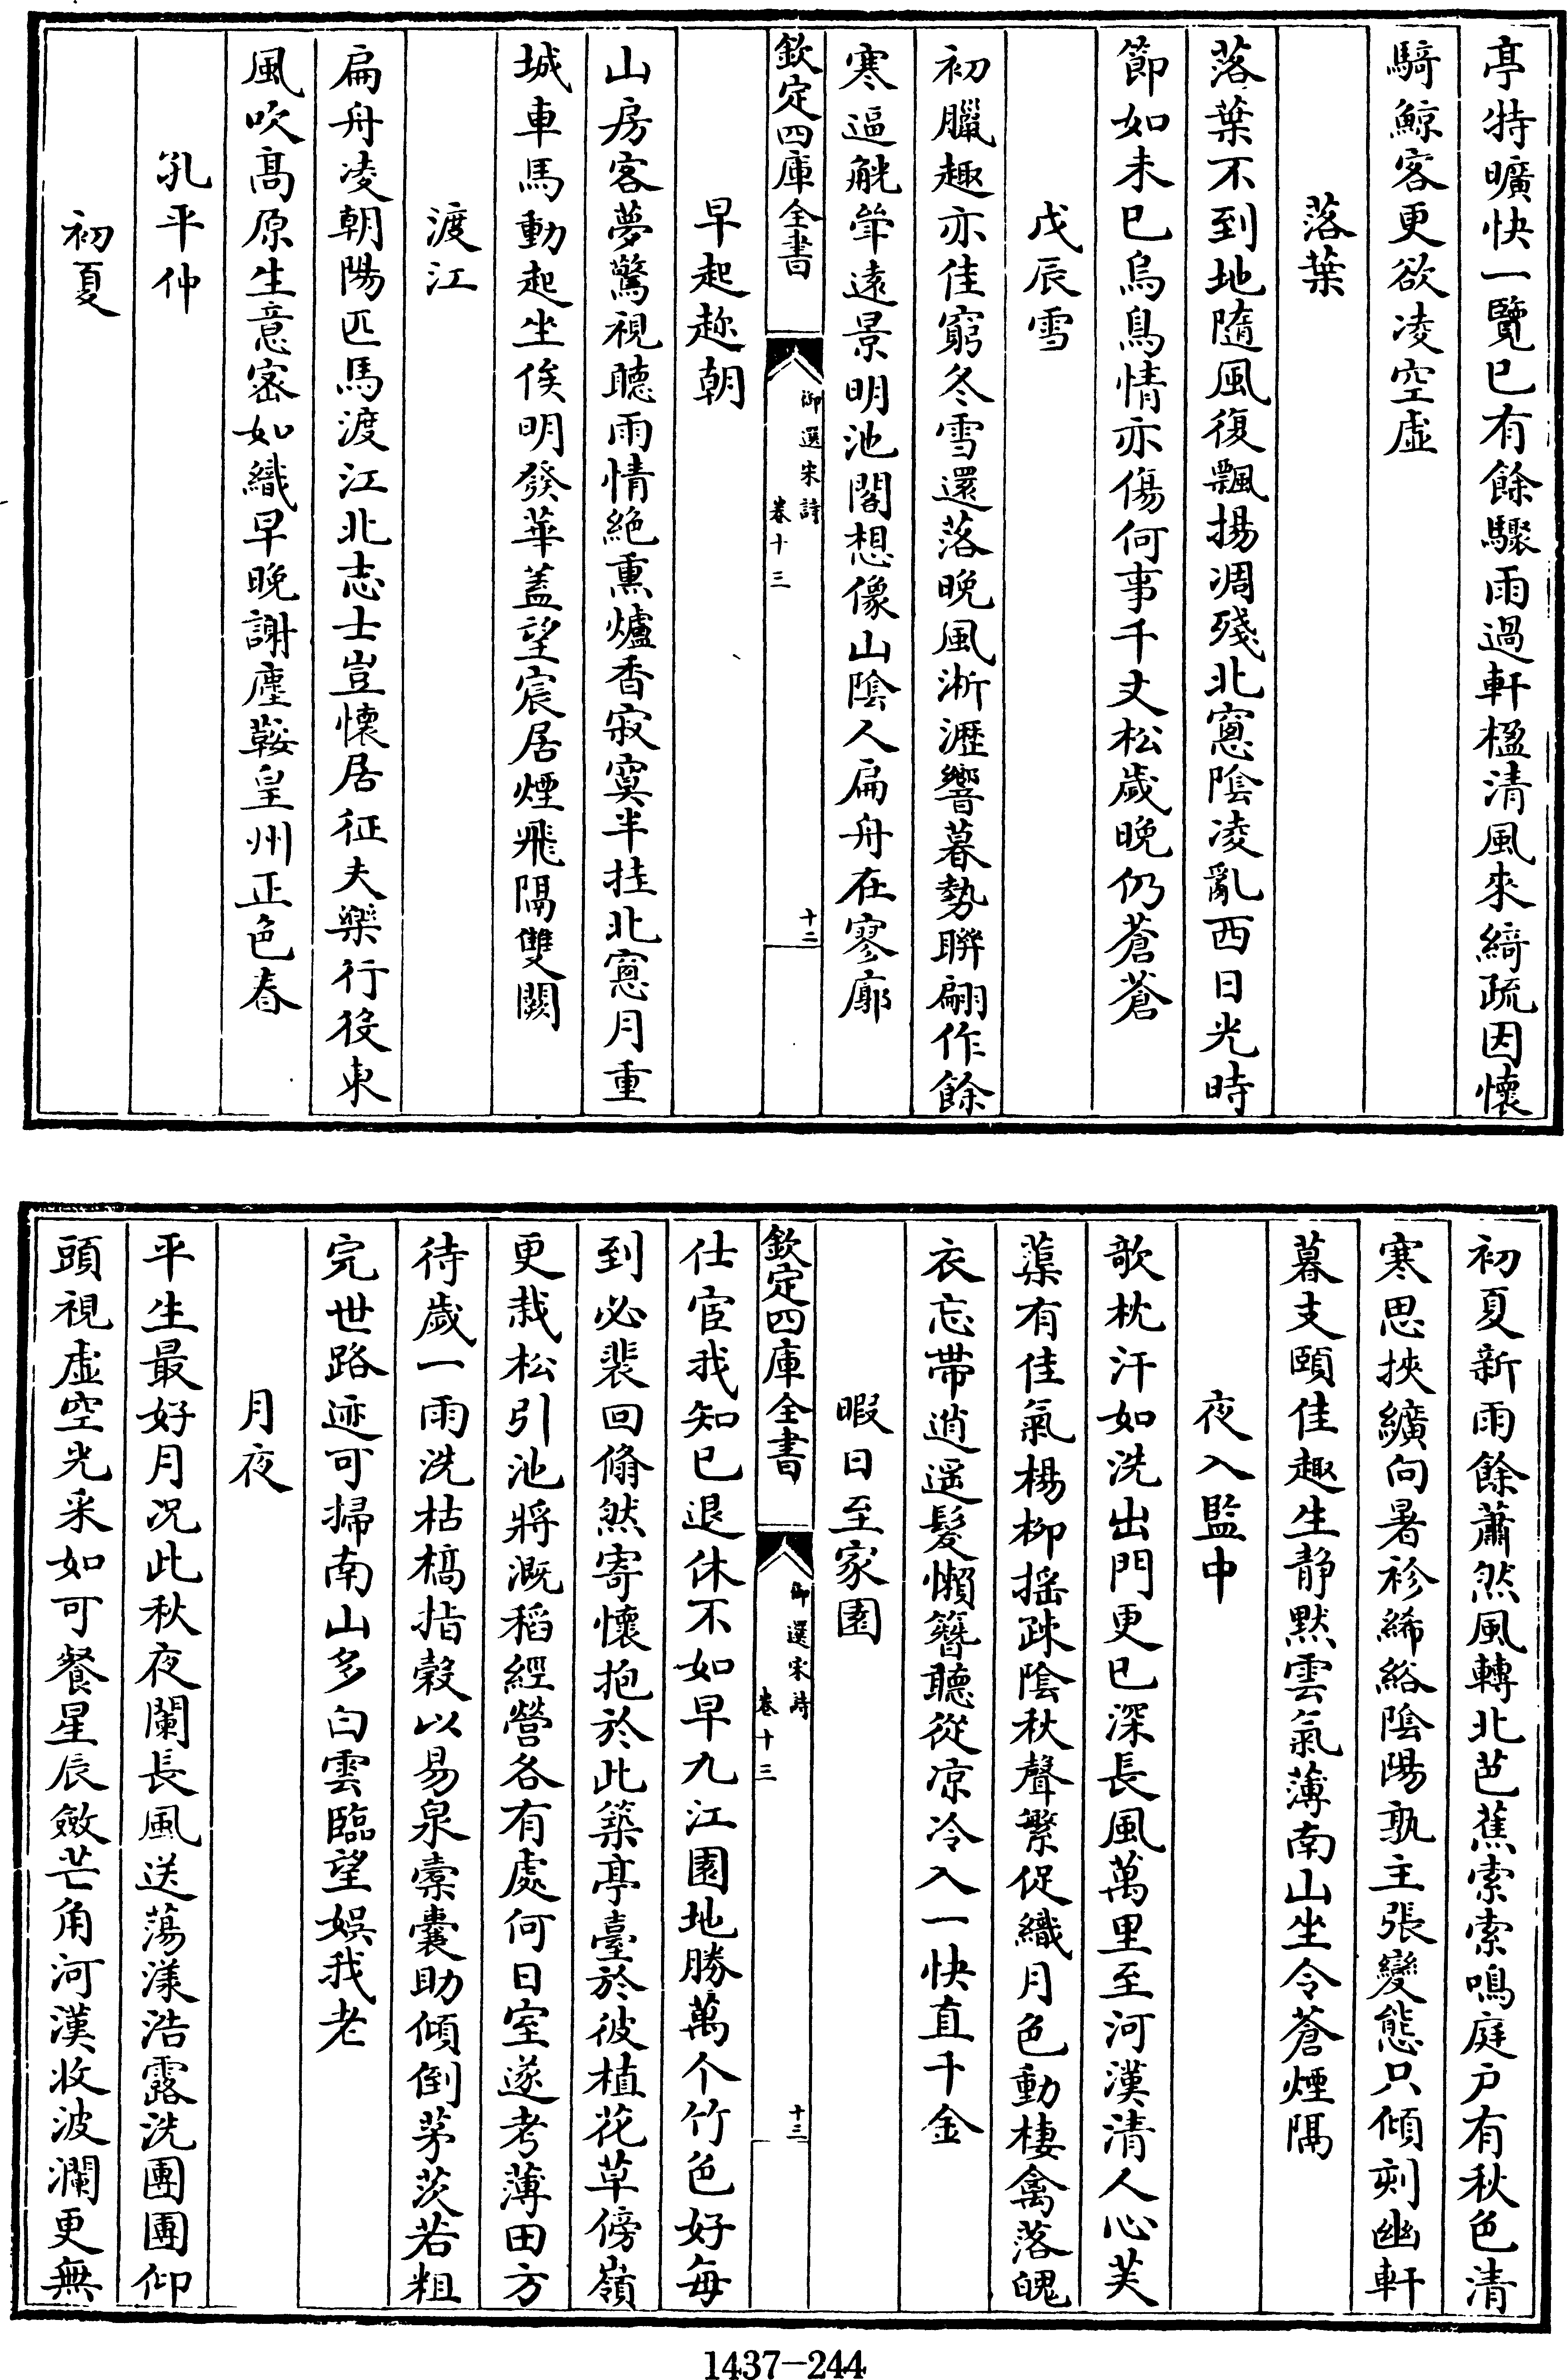 亭特曠快一覽已有餘驟雨過軒楹清風來綺疏因懷
騎鯨客更欲凌空虛
落葉
落葉不到地隨風復飄揚凋殘北窻陰凌亂西日光時
節如未已烏鳥情亦傷何事千丈松歲晚仍蒼蒼
戊辰雪
初臘趣亦佳窮冬雪還落晚風淅瀝響暮勢聯翩作餘
寒逼觥斝遠景明池閣想像山陰人扁舟在寥廓
欽定四庫全書
御選宋詩
卷十三
十二
早起趂朝
山房客夢驚視聽雨情絶熏爐香寂寞半挂北窻月重
城車馬動起坐俟明發華蓋望宸居煙飛隔雙闕
渡江
扁舟凌朝陽匹馬渡江北志士豈懷居征夫樂行役東
風吹髙原生意密如織早晚謝塵鞍皇州正色春
孔平仲
初夏
初夏新雨餘蕭然風轉北芭蕉索索鳴庭户有秋色清
寒思挾纊向暑袗絺綌陰陽孰主張變態只傾刻幽軒
暮支頤佳趣生静黙雲氣薄南山坐令蒼煙隔
夜入監中
欹枕汗如洗出門更已深長風萬里至河漢清人心芙
蕖有佳氣楊柳摇疎陰秋聲繁促織月色動棲禽落魄
衣忘帶逍遥髮懶簪聽從凉冷入一快直千金
暇日至家園
欽定四庫全書
御選宋詩
卷十三
十三
仕宦我知已退休不如早九江園地勝萬个竹色好每
到必裴回翛然寄懷抱於此築亭臺於彼植花草傍嶺
更栽松引池將溉稻經營各有處何日室遂考薄田方
待歲一雨洗枯槁指穀以易泉橐囊助傾倒茅茨若粗
完世路迹可掃南山多白雲臨望娱我老
月夜
平生最好月况此秋夜闌長風送蕩漾浩露洗團團仰
頭視虛空光采如可餐星辰斂芒角河漢收波瀾更無
1437-244